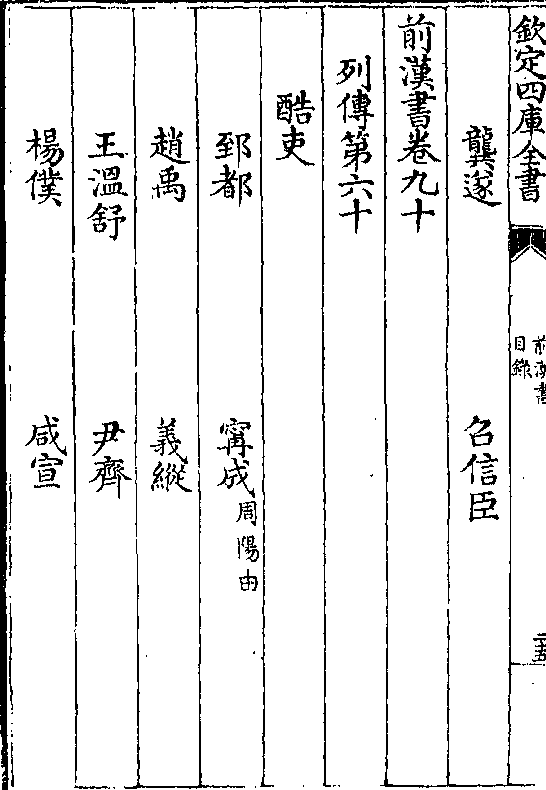 欽定四庫全書
前漢書
目錄
龔遂 召信臣
前漢書卷九十
列傳第六十
酷吏
郅都 甯成周陽由
趙禹 義縱
王溫舒 尹齊
楊僕 咸宣